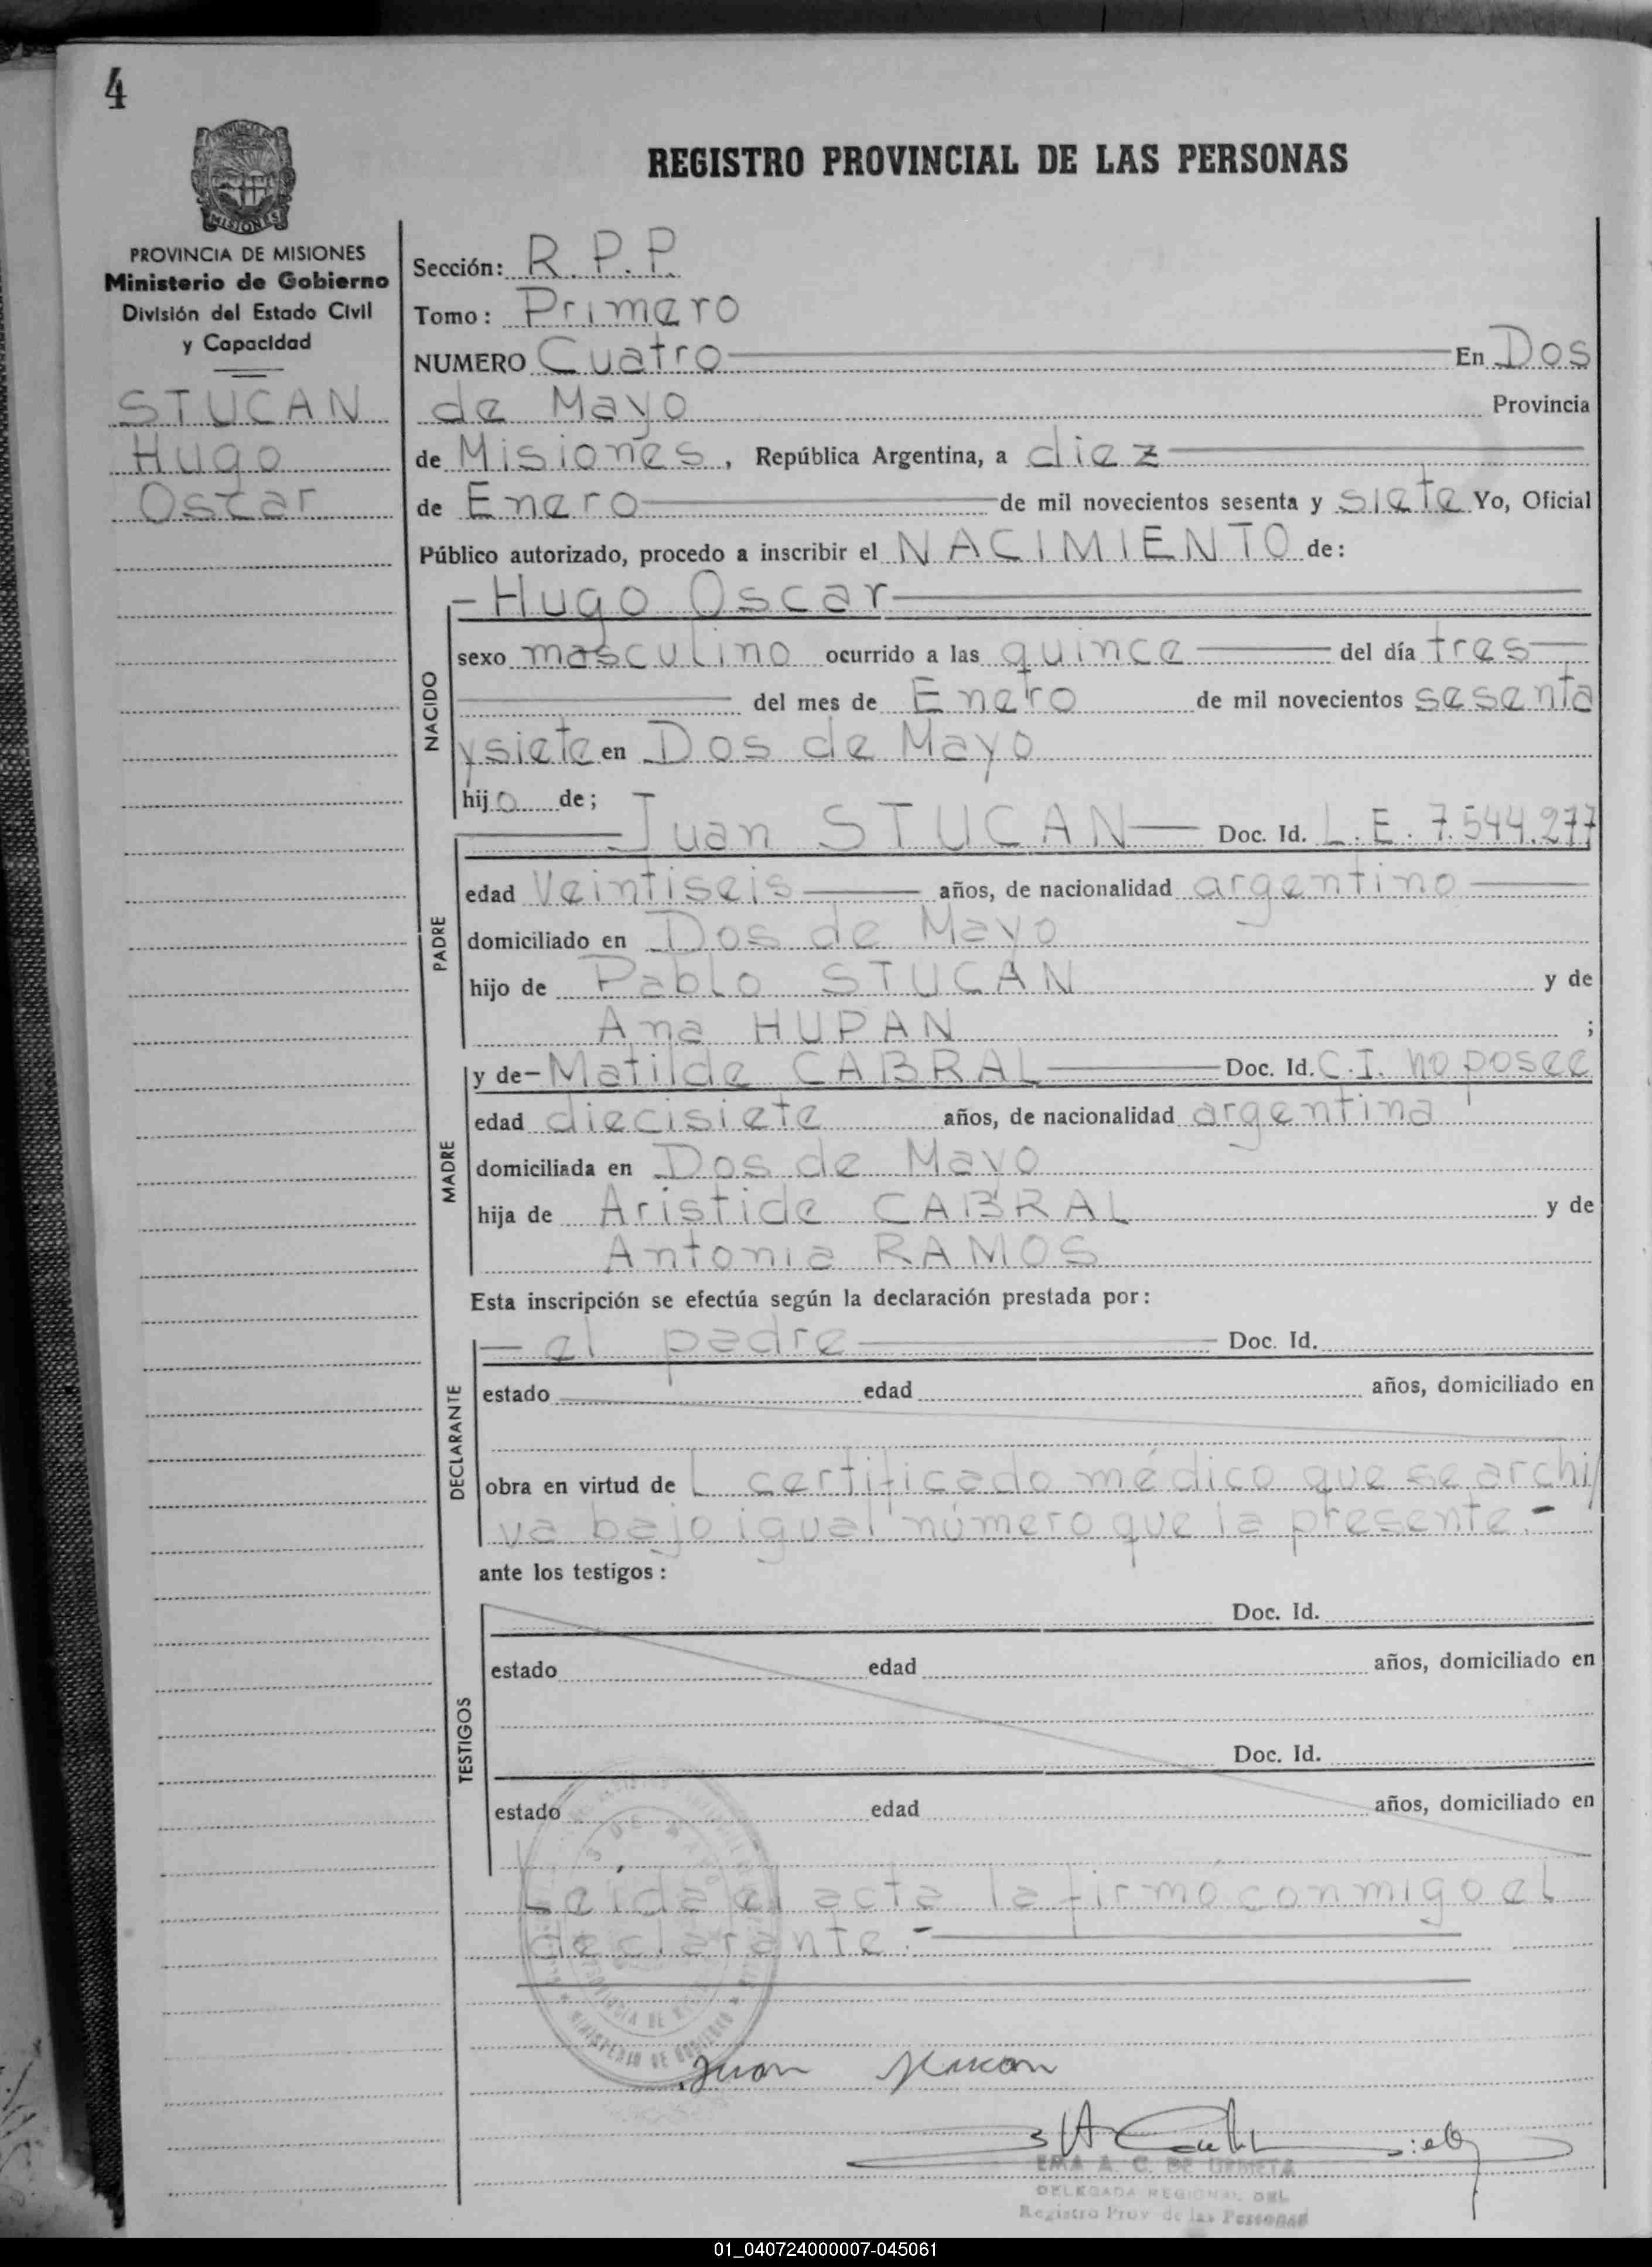 4
REGISTRO PROVINCIAL DE LAS PERSONAS
MISIONES
PROVINCIA DE MISIONES
Ministerio de Gobierno
División del Estado Civil
y Capacidad
STUCAN
Hugo
Oscar
Sección: R.P.P.
Tomo: Primero
NUMERO Cuatro En Dos
de Mayo Provincia
de Misiones, República Argentina, a diez
de Enero de mil novecientos sesenta y siete Yo, Oficial
Público autorizado, procedo a inscribir el NACIMIENTO de:
NACIDO
- Hugo Oscar
sexo masculino ocurrido a las quince del día tres
del mes de Enero de mil novecientos sesenta
y siete en Dos de Mayo
hijo de;
PADRE
Juan STUCAN Doc. Id. L.E. 7.544.277
edad Veintiseis años, de nacionalidad argentino
domiciliado en Dos de Mayo
hijo de Pablo STUCAN y de
Ana HUPAN ;
MADRE
y de - Matilde CABRAL Doc. Id. C.I. no posee
edad diecisiete años, de nacionalidad argentina
domiciliada en Dos de Mayo
hija de Aristide CABRAL y de
Antonia RAMOS
Esta inscripción se efectúa según la declaración prestada por:
DECLARANTE
- el padre Doc. Id.
estado edad años, domiciliado en
obra en virtud de L certificado médico que se archi
va bajo igual número que la presente.-
ante los testigos:
TESTIGOS
Doc. Id.
estado edad años, domiciliado en
Doc. Id.
estado edad años, domiciliado en
Leída el acta la firmó conmigo el
declarante.-
MINISTERIO DE GOBIERNO
Juan Stucan
EMA A. C. DE URBIETA
DELEGADA REGIONAL DEL
Registro Prov de las Personas
01_040724000007-045061